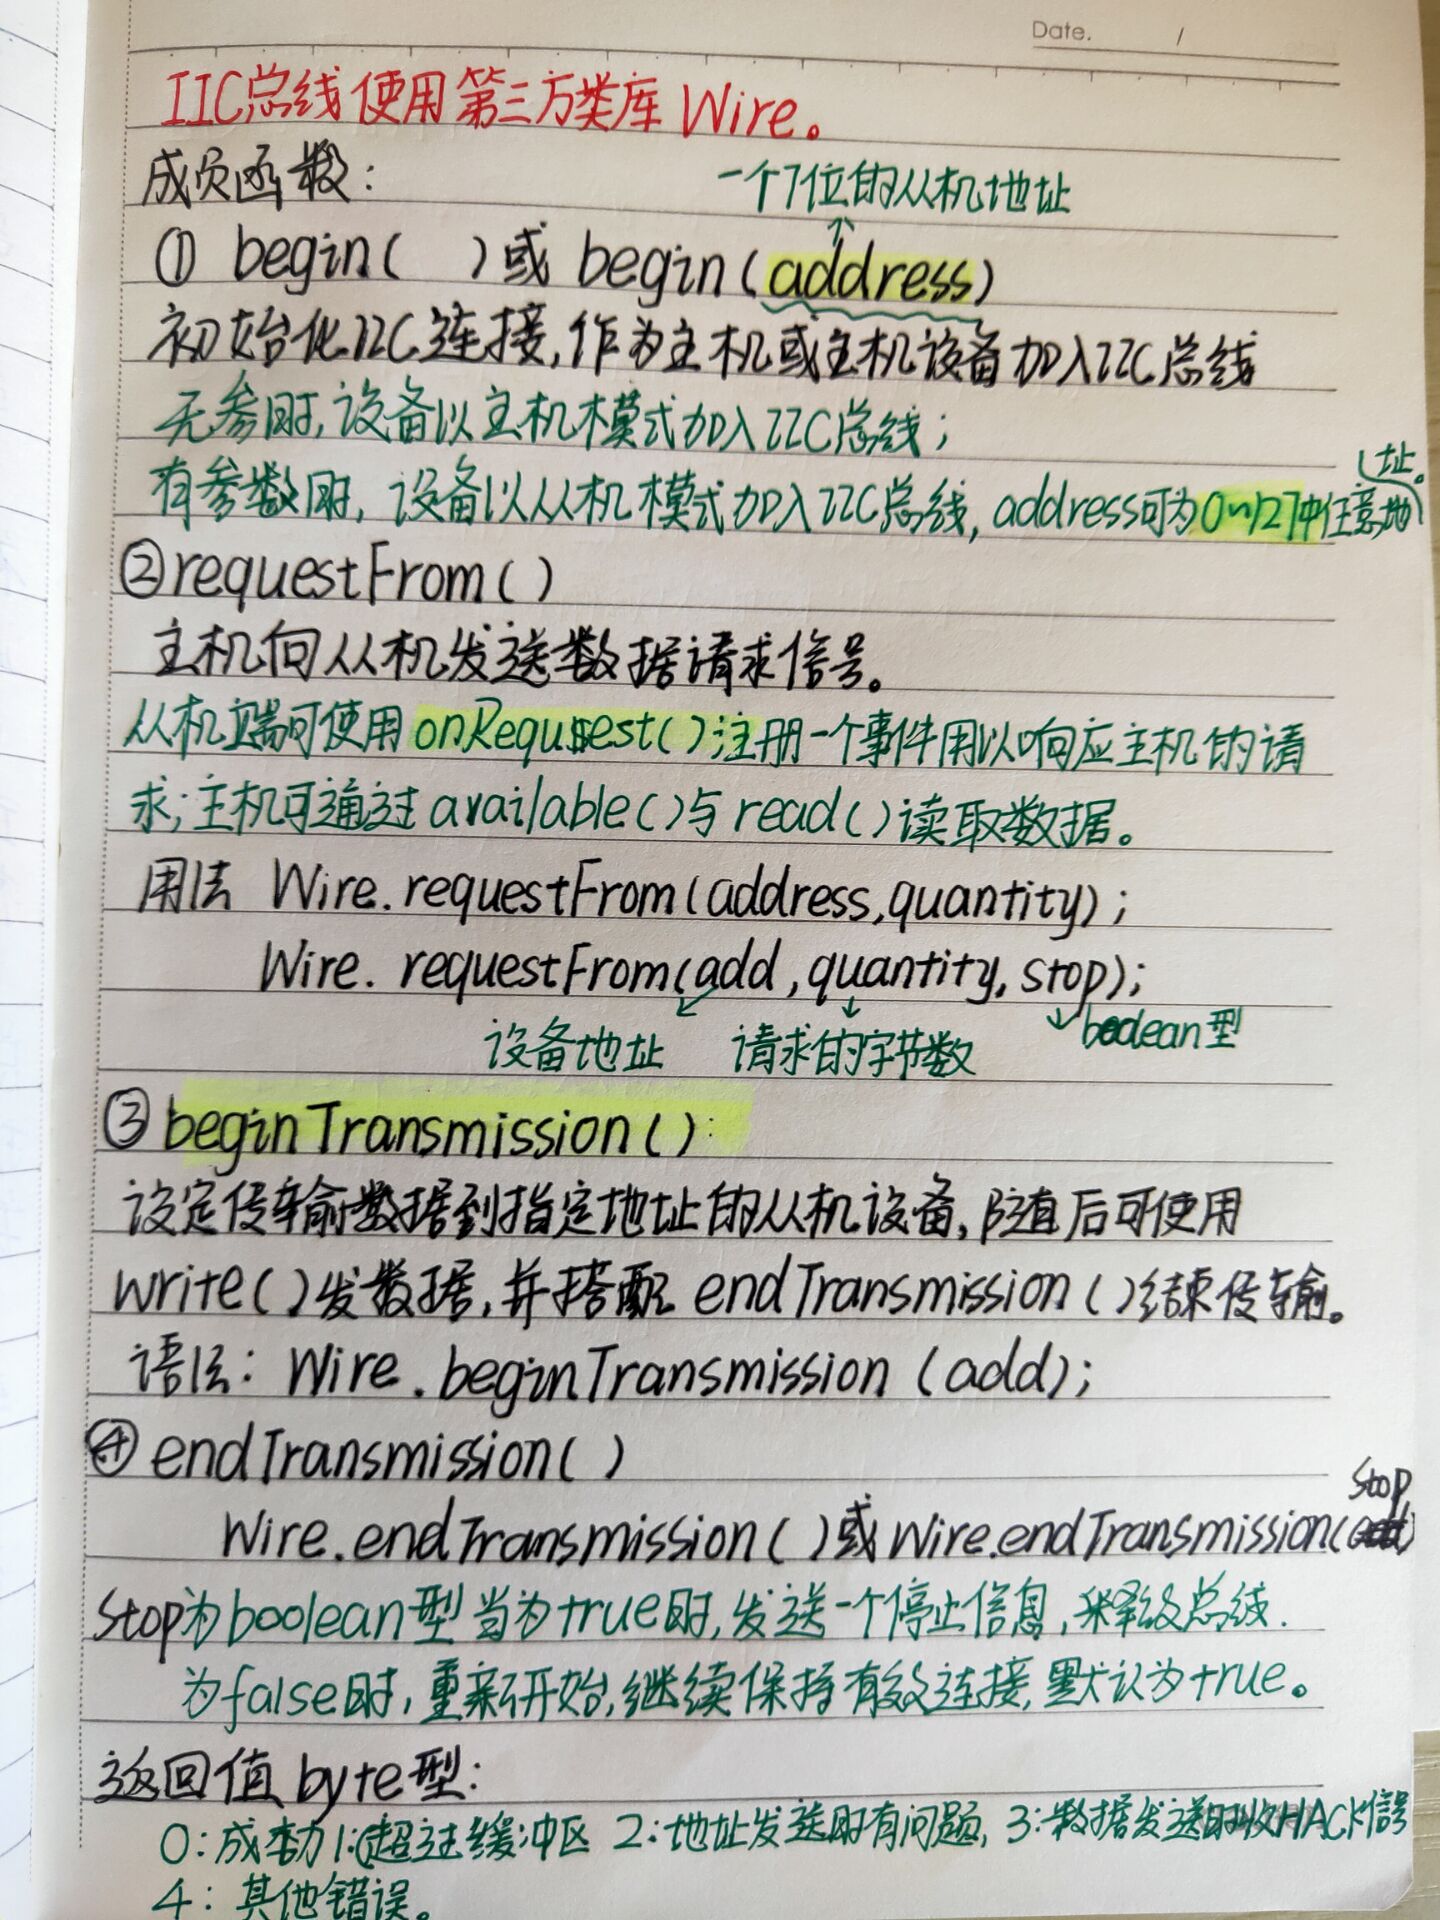 Date. /
IIC总线使用第三方类库 Wire。
成员函数:
一个7位的从机地址
① begin( )或 begin(address)
初始化IIC连接,作为主机或主机设备加入IIC总线
无参时,设备以主机模式加入IIC总线;
有参数时,设备以从机模式加入IIC总线,address可为0~127中任意地
址。
②requestFrom()
主机向从机发送数据请求信号。
从机端可使用onRequest()注册一个事件用以响应主机的请
求;主机可通过available()与read()读取数据。
用法 Wire.requestFrom(address,quantity);
Wire.requestFrom(add,quantity,stop);
设备地址 请求的字节数 boolean型
③ beginTransmission():
设定传输数据到指定地址的从机设备,随后可使用
write()发数据,并搭配 endTransmission()结束传输。
语法: Wire.beginTransmission(add);
④ endTransmission()
Wire.endTransmission()或Wire.endTransmission(stop)
stop为boolean型当为true时,发送一个停止信息,释放总线.
为false时,重新开始,继续保持有效连接,默认为true。
返回值 byte型:
0:成功 1:超过缓冲区 2:地址发送时有问题, 3:数据发送时收NACK信号
4:其他错误。